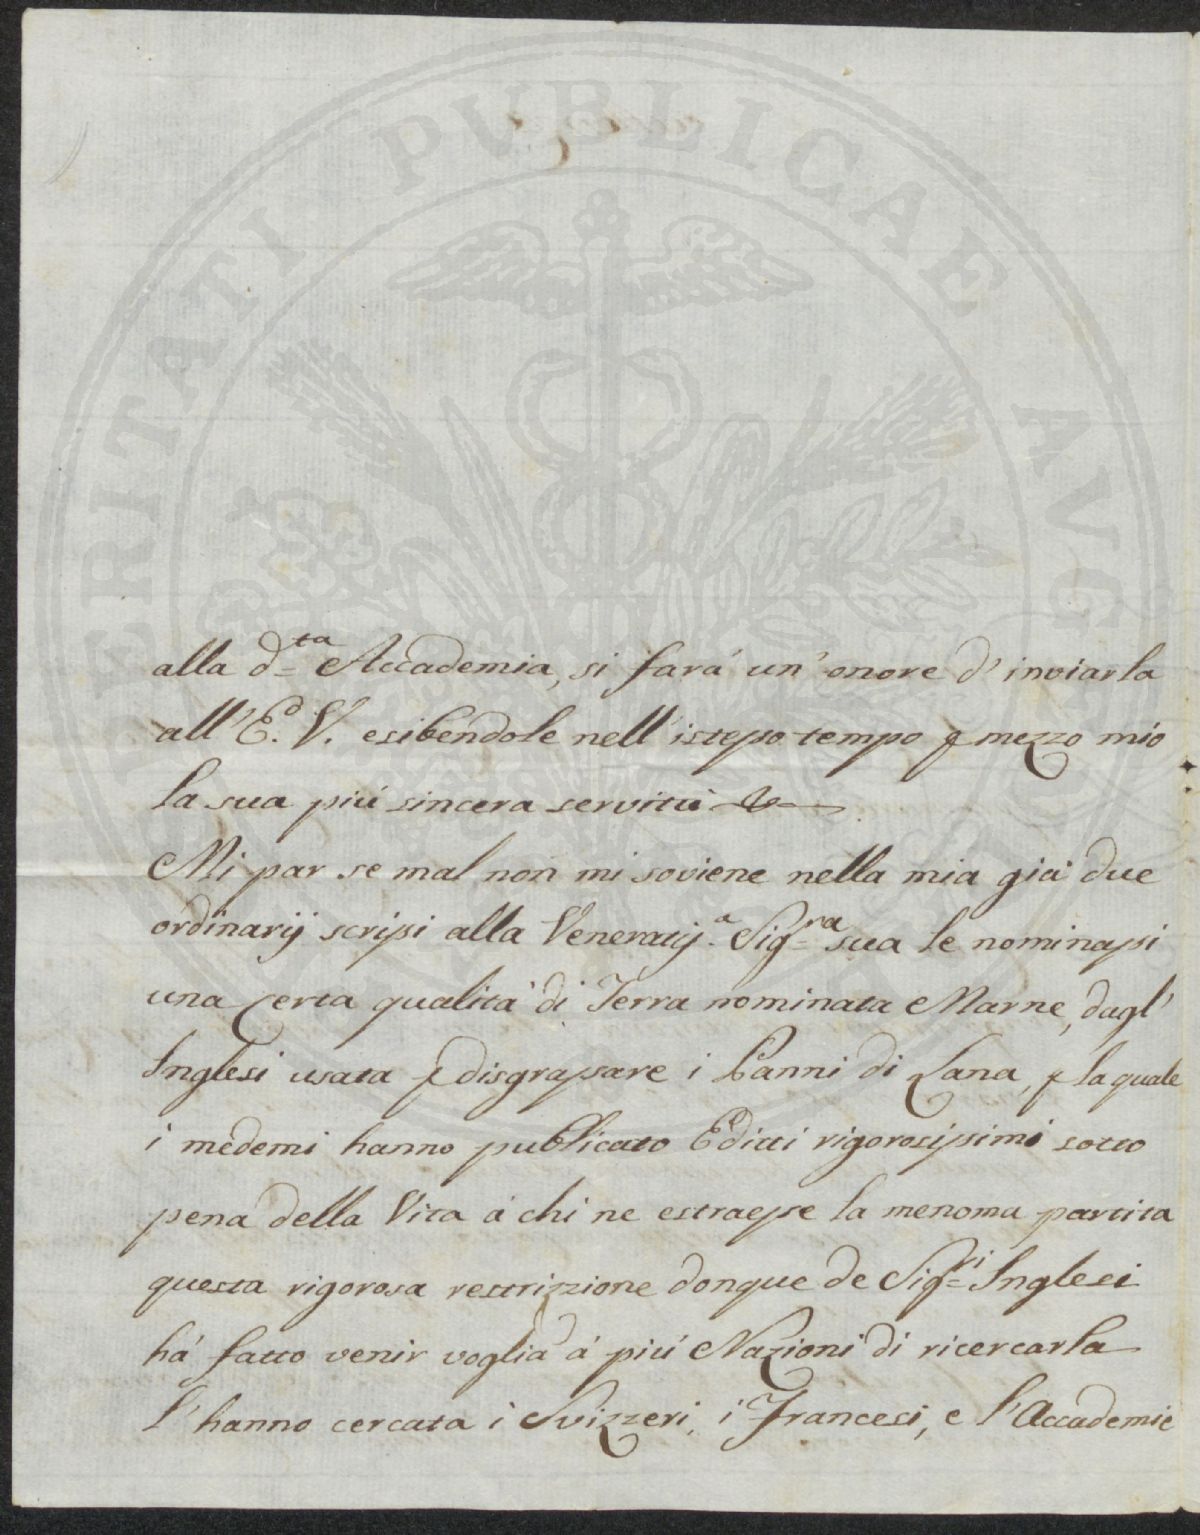 PROSPERITATI PUBLICAE AUG
alla d.ta Accademia, si fará un' onore d' inviarla
all' E. V. esibendole nell' istesso tempo p mezzo mio
la sua piú sincera servitú
Mi par se mal non mi soviene nella mia giá due
ordinarij scrissi alla Veneratis.a Sig.ra sua le nominassi
una certa qualitá di Terra nominata Marne, dagl'
Inglesi usata p disgrassare i Panni di Lana, p la quale
i medemi hanno publicato Editti rigorosissimi sotto
pena della Vita á chi ne estraesse la menoma partita
questa rigorosa restrizzione donque de Sig.ri Inglesi
há fatto venir voglia á piú Nazioni di ricercarla
l' hanno cercata i Svizzeri, i Francesi, e l' Accademie